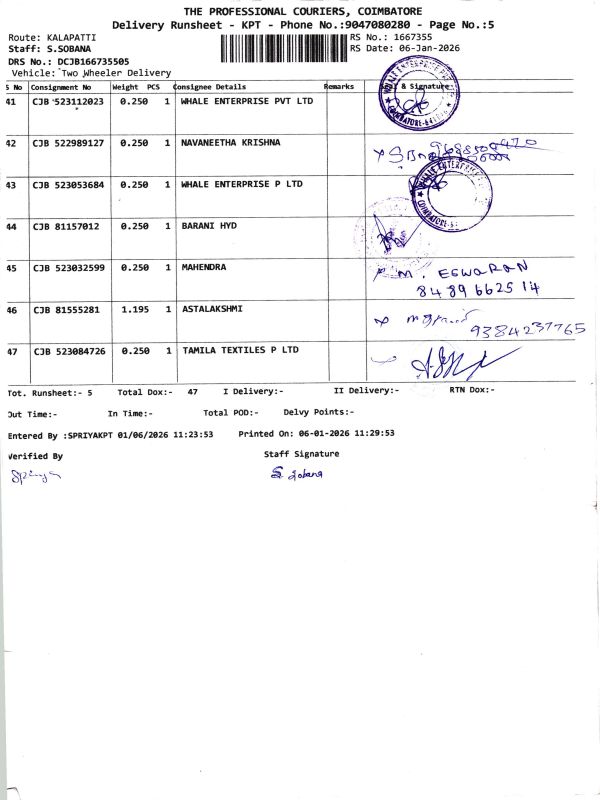 THE PROFESSIONAL COURIERS, COIMBATORE
Delivery Runsheet - KPT - Phone No.:9047080280 - Page No.:5
Route: KALAPATTI RS No.: 1667355
Staff: S.SOBANA RS Date: 06-Jan-2026
DRS No.: DCJB166735505
Vehicle: Two Wheeler Delivery
S No Consignment No Weight PCS Consignee Details Remarks & Signature
41 CJB 523112023 0.250 1 WHALE ENTERPRISE PVT LTD
WHALE ENTERPRISE PVT
COIMBATORE-641
42 CJB 522989127 0.250 1 NAVANEETHA KRISHNA
43 CJB 523053684 0.250 1 WHALE ENTERPRISE P LTD
WHALE ENTERPRISE
COIMBATORE-
44 CJB 81157012 0.250 1 BARANI HYD
45 CJB 523032599 0.250 1 MAHENDRA M. ESWARAN
8489662514
46 CJB 81555281 1.195 1 ASTALAKSHMI
9384237765
47 CJB 523084726 0.250 1 TAMILA TEXTILES P LTD
Tot. Runsheet:- 5 Total Dox:- 47 I Delivery:- II Delivery:- RTN Dox:-
Out Time:- In Time:- Total POD:- Delvy Points:-
Entered By :SPRIYAKPT 01/06/2026 11:23:53 Printed On: 06-01-2026 11:29:53
Verified By Staff Signature
S. Sobana